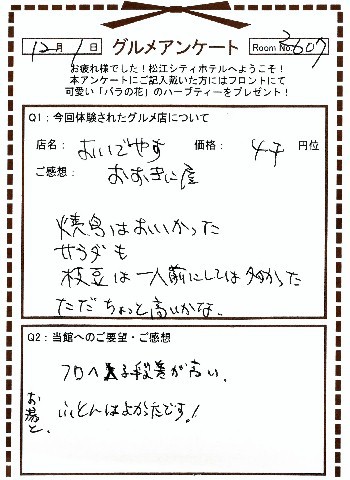 12月1日 グルメアンケート Room No. 2607
お疲れ様でした!松江シティホテルへようこそ!
本アンケートにご記入戴いた方にはフロントにて
可愛い「バラの花」のハーブティーをプレゼント!
Q1:今回体験されたグルメ店について
店名: おいでやす 価格: 4千 円位
ご感想: おおきに屋
焼鳥はおいしかった
サラダも
枝豆は一人前にしては多かった
ただちょっと高いかな。
Q2:当館へのご要望・ご感想
フロへ 段差が高い。
お湯と、
ふとんはよかったです!